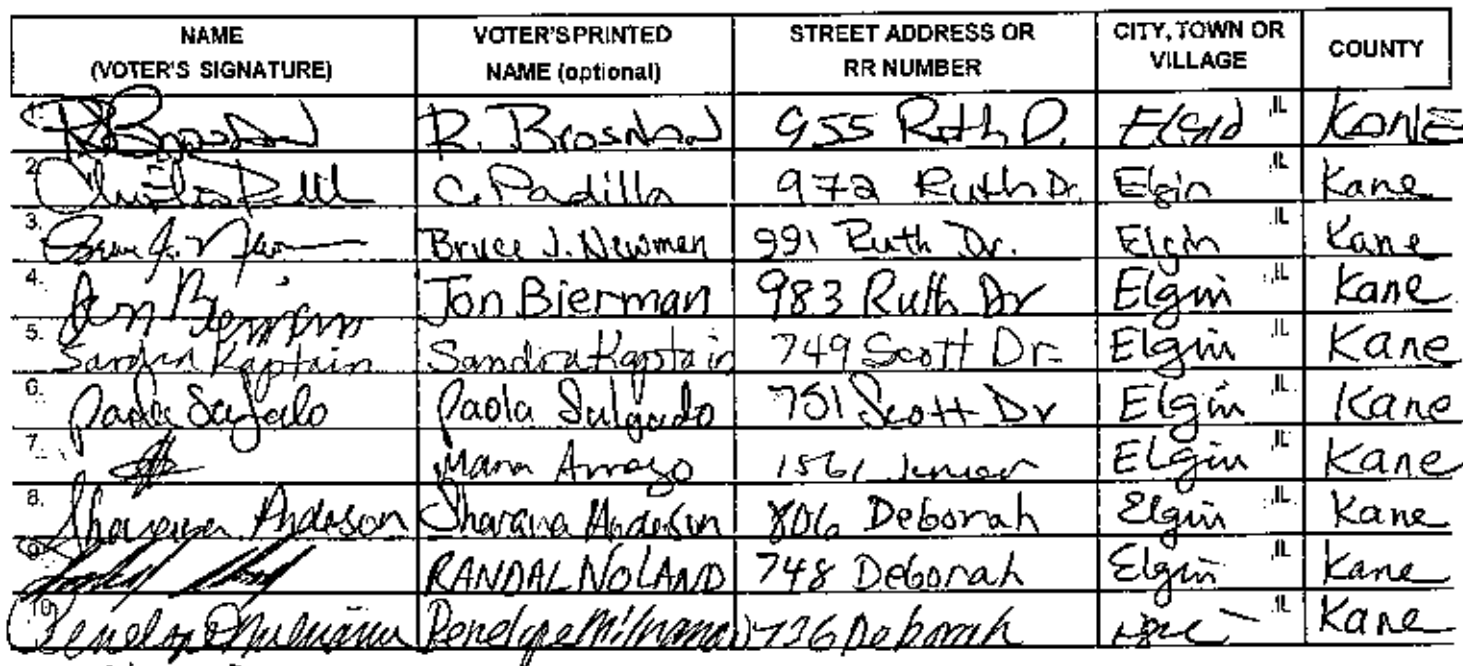 NAME (VOTER'S SIGNATURE) VOTER'S PRINTED NAME (optional) STREET ADDRESS OR RR NUMBER CITY, TOWN OR VILLAGE COUNTY
1. R. Brosnan 955 Ruth D. Elgin ,IL KANE
2. C. Padilla 972 Ruth Dr. Elgin ,IL Kane
3. Bruce J. Newman 991 Ruth Dr. Elgin ,IL Kane
4. Jon Bierman Jon Bierman 983 Ruth Dr Elgin ,IL Kane
5. Sandra Kaptain Sandra Kaptain 749 Scott Dr. Elgin ,IL Kane
6. Paola Salgado Paola Salgado 751 Scott Dr Elgin ,IL Kane
7. Arroyo 1561 Elgin ,IL Kane
8. Anderson Anderson 806 Deborah Elgin ,IL Kane
9. RANDAL NOLAND 748 Deborah Elgin ,IL Kane
10. Penelope Penelope 736 Deborah ,IL Kane